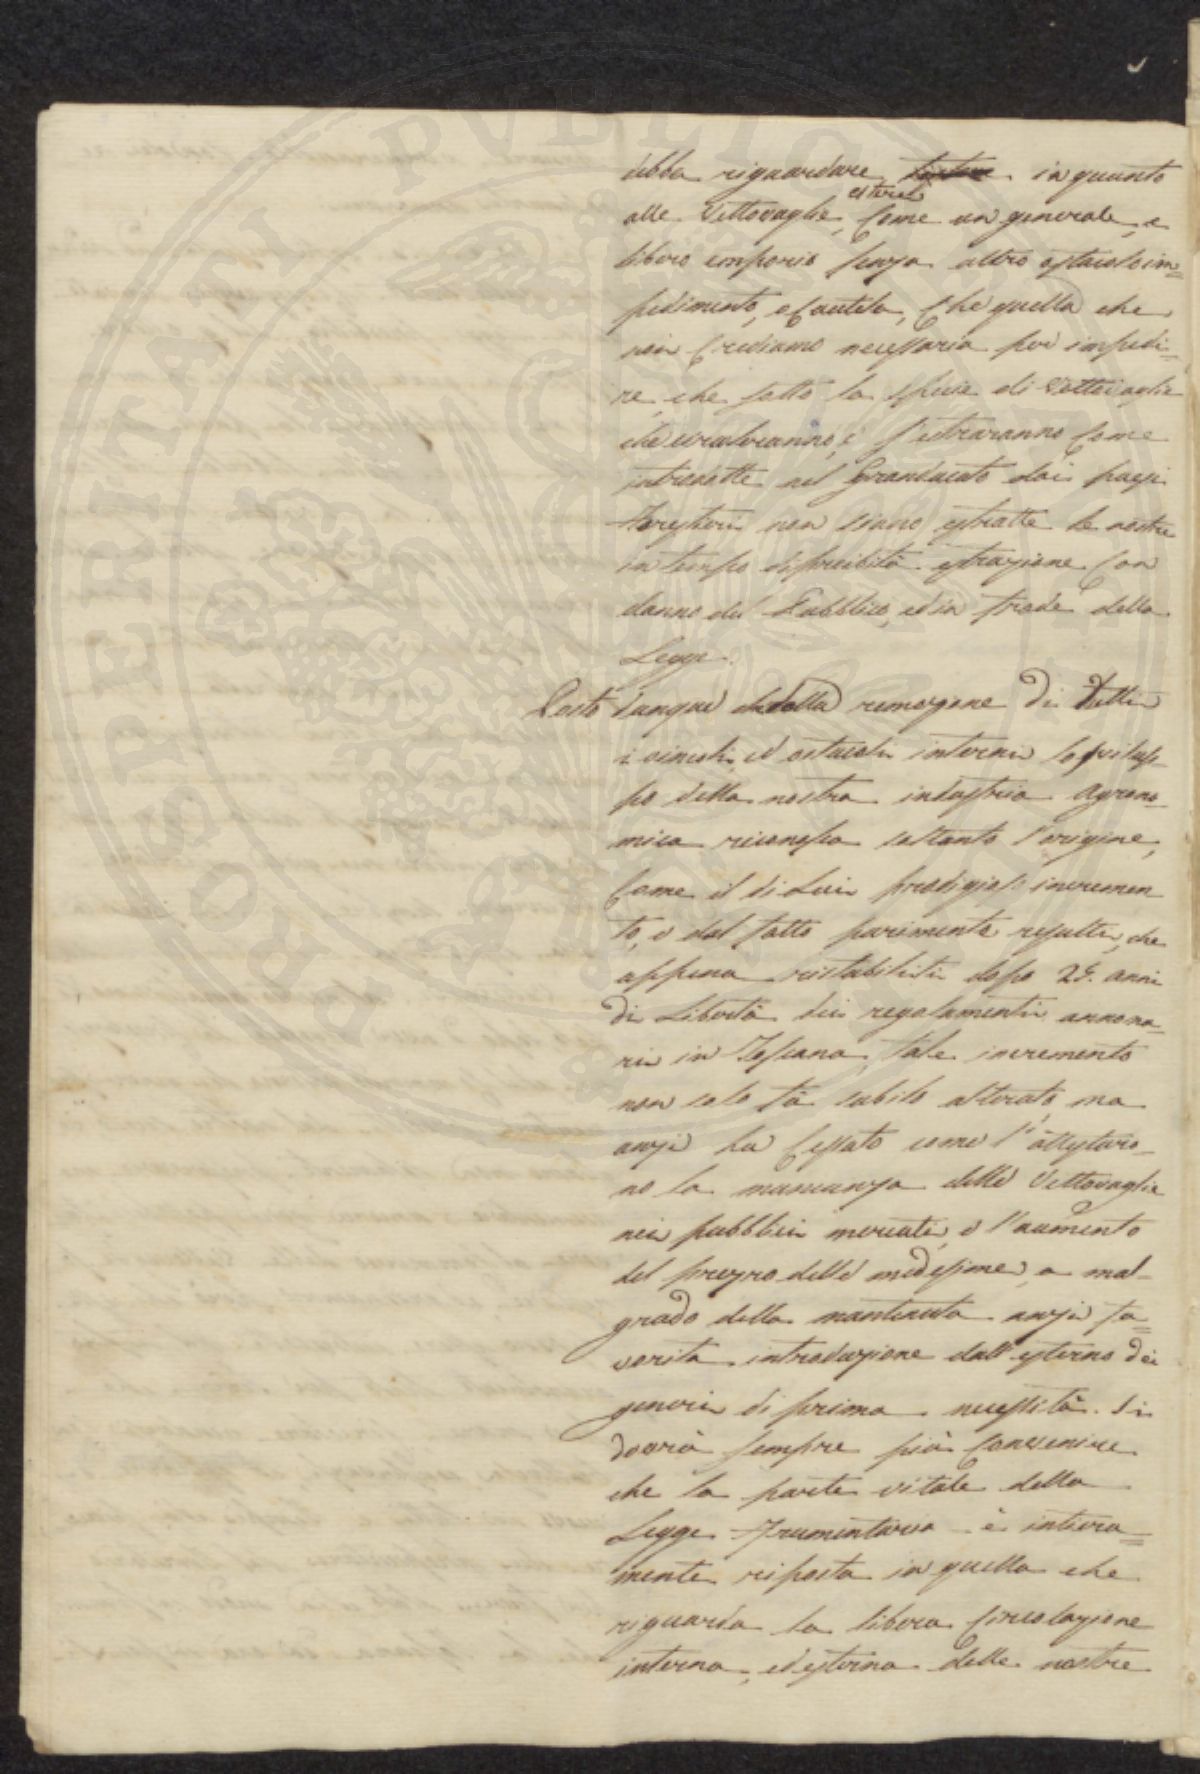 PROSPERITATI PVBLICAE
debba riguardare in quanto
estere
alle Vettovaglie, Come un generale, e
libero emporio senza altro ostacolo im=
pedimento, o Cautela, Che quella che
noi Crediamo necessaria per impedi=
re, che sotto la specie di Vettovaglie
che circoleranno, e s'estrarranno Come
introdotte nel Granducato dai paesi
Foresteri non siano estratte le nostre
in tempo di proibita estrazione Con
danno del Pubblico, ed in frode della
Legge.
Posto dunque che dalla remozione di Tutti
i vincoli, ed ostacoli interni lo svilup=
po della nostra industria Agrono=
mica riconosca soltanto l'origine,
Come il di Lui prodigioso incremen
to, e dal fatto parimente resulti, che
appena ristabiliti dopo 25. anni
di Libertà dei regolamenti annona=
ri in Toscana, tale incremento
non solo fù subito alterato, ma
anzi ha Cessato come l'attestaro=
no la mancanza delle Vettovaglie
nei pubblici mercati, e l'aumento
del prezzo delle medesime, a mal=
grado della mantenuta anzi fa=
vorita introduzione dall'esterno dei
generi di prima necessità. Si
dovrà sempre più Convenire
che la parte vitale della
Legge Frumentaria è intiera=
mente riposta in quella che
riguarda la libera Circolazione
interna, ed esterna delle nostre